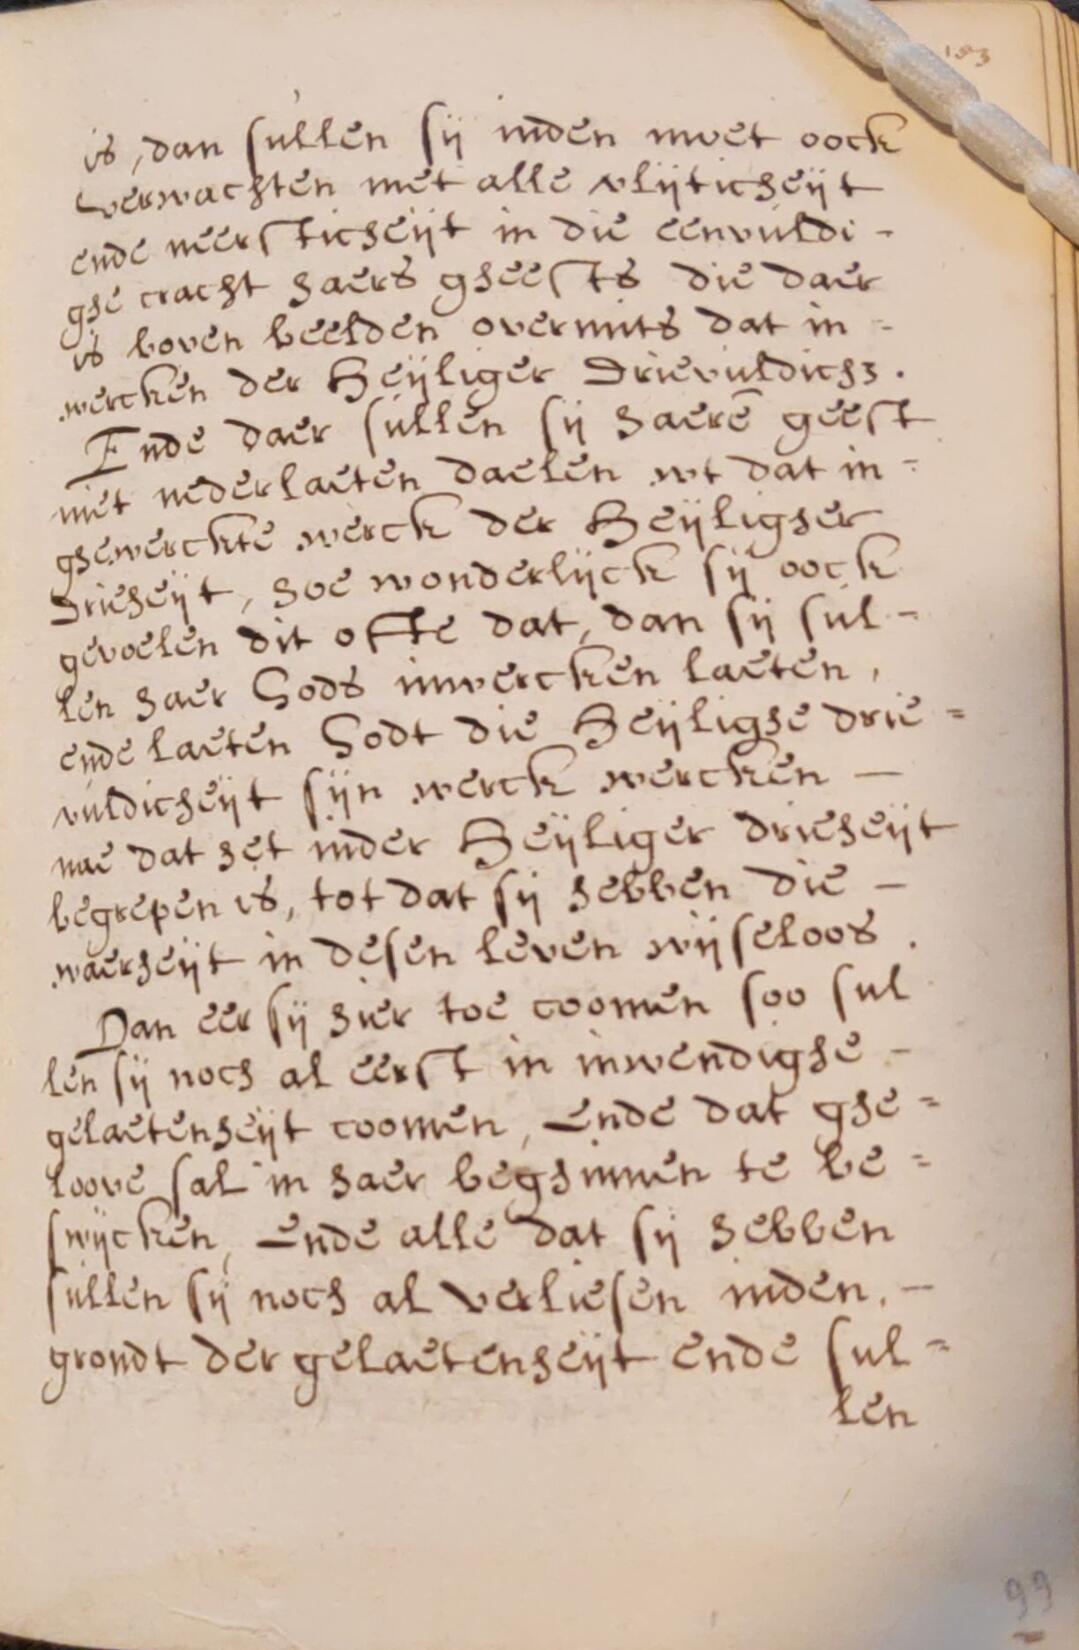 193
is, dan sullen sij inden moet oock
verwachten met alle vlijticheijt
ende neersticheijt in die eenvuldi -
ghe cracht haers gheests die daer
is boven beelden overmits dat in =
wercken der Heijliger Drievuldich3.
Ende daer sullen sij haerē geest
niet nederlaeten daelen wt dat in =
ghewerckte werck der Heijligher
Drieheijt, hoe wonderlijck sij oock
gevoelen dit ofte dat, dan sij sul =
len haer Gods inwercken laeten,
ende laeten Godt die Heijlighe drie =
vuldicheijt sijn werck wercken —
nae dat het inder Heijliger drieheijt
begrepen is, tot dat sij hebben die —
waerheijt in desen leven wijseloos.
Dan eer sij hier toe coomen soo sul
len sij noch al eerst in inwendighe —
gelaetenheijt coomen, Ende dat ghe =
loove sal in haer beghinnen te be =
swijcken, Ende alle dat sij hebben
sullen sij noch al verliesen inden. —
grondt der gelaetenheijt ende sul =
len
99